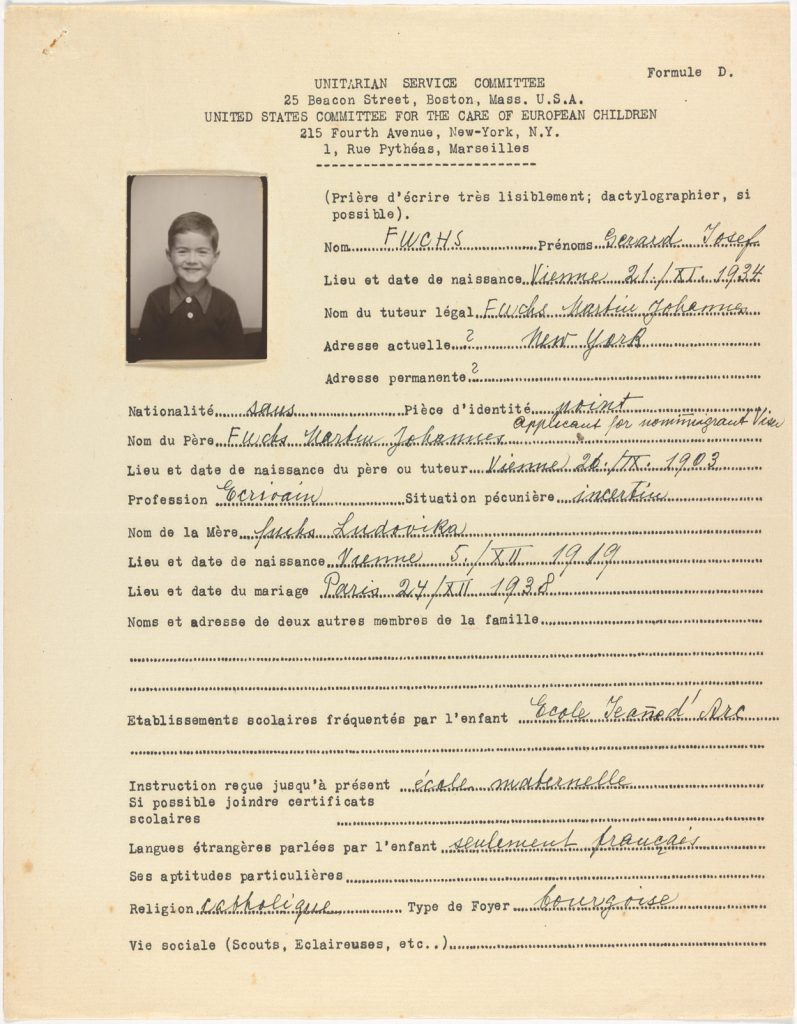 Formule D.
UNITARIAN SERVICE COMMITTEE
25 Beacon Street, Boston, Mass. U.S.A.
UNITED STATES COMMITTEE FOR THE CARE OF EUROPEAN CHILDREN
215 Fourth Avenue, New-York, N.Y.
1, Rue Pythéas, Marseilles
(Prière d'écrire très lisiblement; dactylographier, si
possible).
Nom FUCHS Prénoms Gerard Josef
Lieu et date de naissance Vienne 21./XI. 1934
Nom du tuteur légal Fuchs Martin Johannes
Adresse actuelle ? New York
Adresse permanente ?
Nationalité sans Pièce d'identité point
Applicant for nonimmigrant Visa
Nom du Père Fuchs Martin Johannes
Lieu et date de naissance du père ou tuteur Vienne /IX. 1903
Profession Ecrivain Situation pécunière incertin
Nom de la Mère fuchs Ludovika
Lieu et date de naissance Vienne 5./XII 1919
Lieu et date du mariage Paris 24/XII 1938
Noms et adresse de deux autres membres de la famille
Etablissements scolaires fréquentés par l'enfant Ecole Jeanne d'Arc
Instruction reçue jusqu'à présent école maternelle
Si possible joindre certificats
scolaires
Langues étrangères parlées par l'enfant seulement français
Ses aptitudes particulières
Religion catholique Type de Foyer bourgoise
Vie sociale (Scouts, Eclaireuses, etc..)